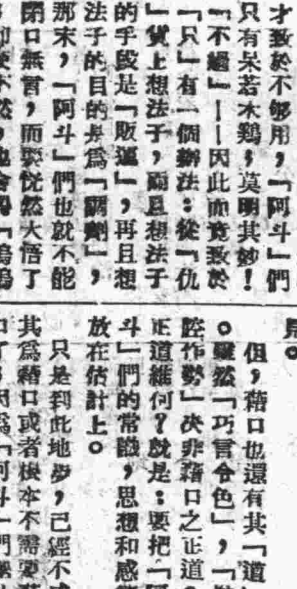 才致於不够用，「阿斗」們
只有呆若木鷄，莫明其妙！
「不過」——因此而竟致於
「只」有一個辦法：從「仇
」貨上想法子，而且想法子
的手段是「販運」，再且想
法子的目的是爲「調劑」，
那末，「阿斗」們也就不能
閉口無言，而要恍然大悟了
但，藉口也還有其「道
。雖然「巧言令色」，「
腔作勢」决非藉口之正道。
正道維何？就是：要把「
斗」們的常識，思想和感
放在估計上。
只是到此地步，已經不
其爲藉口或者根本不需要